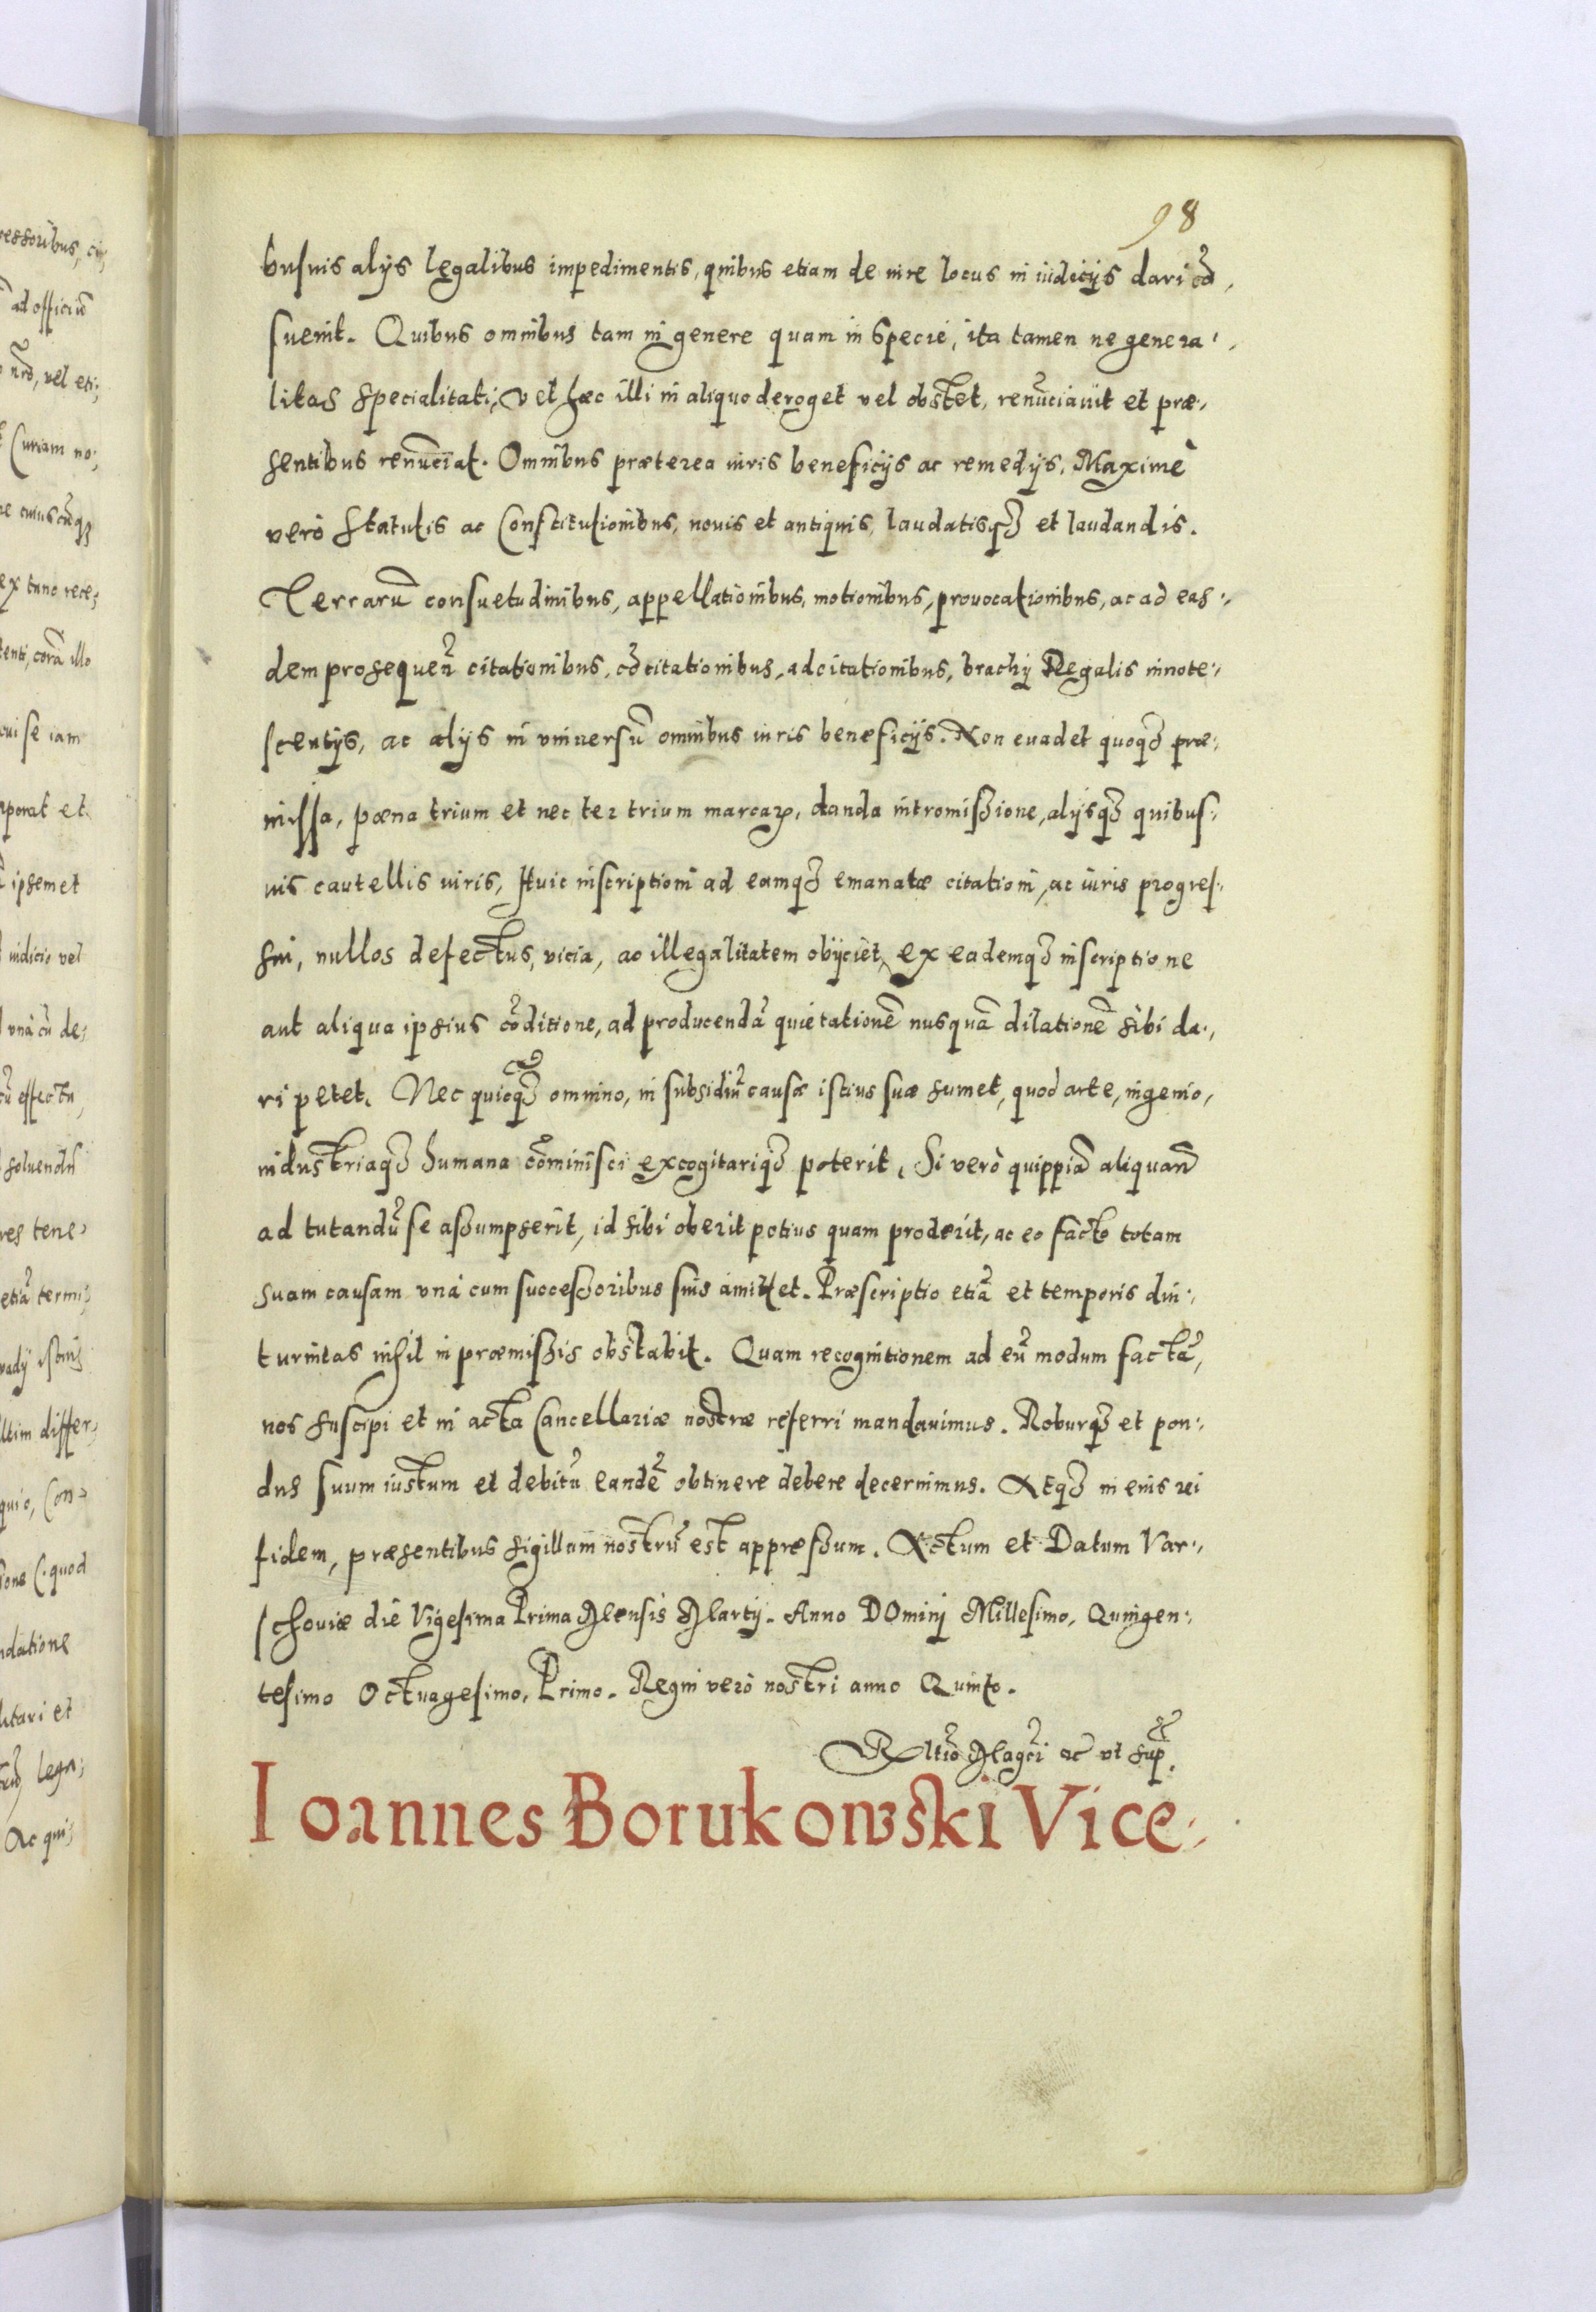 98
busuis alijs legalibus impedimentis, quibus etiam de iure locus in iudicijs dari cō,
sueuit. Quibus omnibus tam in genere quam in specie, ita tamen ne genera,
litas specialitati, vel hæc illi in aliquo deroget vel obstet, renūciauit et præ,
sentibus renūciat. Omnibus præterea iuris beneficijs ac remedijs, Maximè
verò statutis ac Constitutionibus, nouis et antiquis, laudatisqȝ et laudandis.
Terrarū consuetudinibus, appellationibus, motionibus, prouocationibus, ac ad eas,
dem prosequeñ citationibus, cōcitationibus, adcitationibus, brachij Regalis innote,
scentijs, ac alijs in vniuersū omnibus iuris beneficijs. Non euadet quoqȝ præ,
missa, pœna trium et nec ter trium marcarꝝ, danda intromissione, alijsqȝ quibus,
uis cautellis iuris, Huic inscriptioni ad eamqȝ emanatæ citationi, ac iuris progres,
sui, nullos defectus, vicia, ac illegalitatem obijciet, ex eademqȝ inscriptione
aut aliqua ipsius cōditione, ad producendā quietationē nusquā dilationē sibi da,
ri petet. Nec quicqȝ omnino, in subsidiū causæ istius suæ sumet, quod arte, ingenio,
industriaqȝ humana cōminisci excogitariqȝ poterit. Si verò quippiā aliquañ
ad tutandū se assumpserit, id sibi oberit potius quam proderit, ac eo facto totam
suam causam vnà cum successoribus suis amittet. Præscriptio etiā et temporis diu,
turnitas nihil in præmissis obstabit. Quam recognitionem ad eū modum factā,
nos suscipi et in acta Cancellariæ nostræ referri mandauimus. Roburqȝ et pon,
dus suum iustum et debitū eandē obtinere debere decernimus. Atqȝ in eius rei
fidem, præsentibus sigillum nostrū est appressum. Actum et Datum Var,
schouiæ die Vigesima Prima Mensis Martij. Anno DOmini Millesimo, Quingen,
tesimo Octuagesimo, Primo. Regni verò nostri anno Quinto.
Rltio Magci ac vt sup.
Ioannes Borukowski Vice,